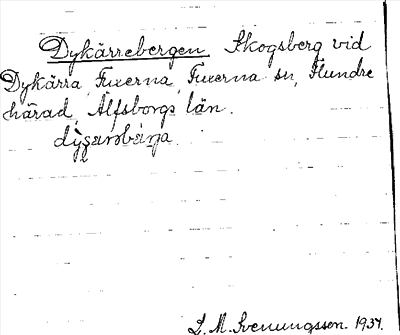 Dykärrebergen Skogsberg vid
Dykärra Fuxerna, Fuxerna sn, Flundre
härad, Älfsborgs län.
L. M. Svenungsson 1937.